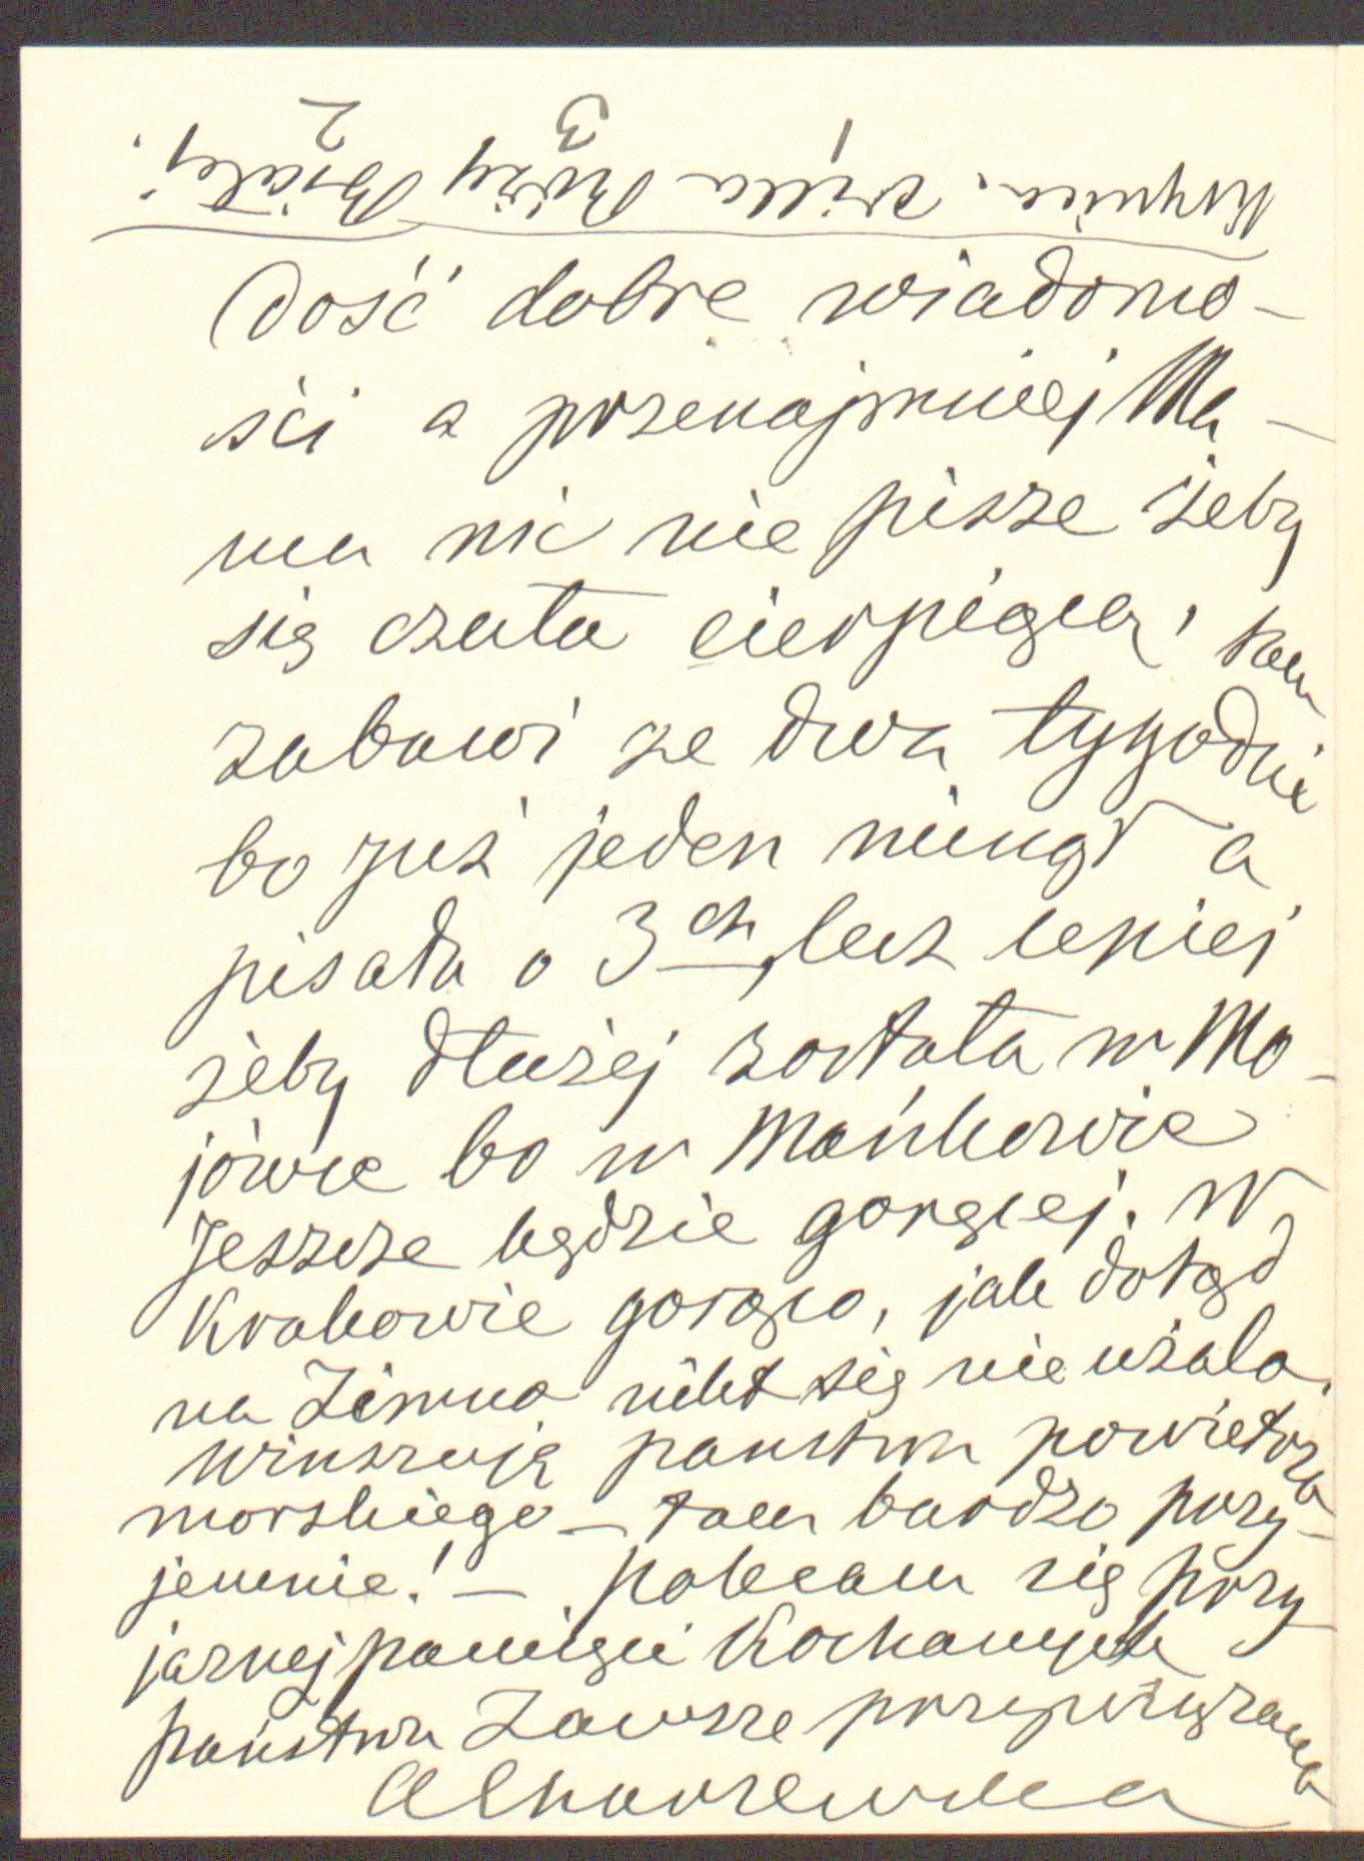 Krynica. Willa Róży Białej.
1 3 2
Dość dobre wiadomo-
ści a przenajmniej Ma-
ma nic nie pisze żeby
się czuła cierpiącą, tam
zabawi ze dwa tygodnie
bo już jeden minął a
pisała o 3ch, lecz lepiej
żeby dłużej została w Mo-
jówce bo w Mańkowie
jeszcze będzie goręcej. W
Krakowie gorąco, jak dotąd
na zimno nikt się nie użala.
Winszuję państwu powietrza
morskiego – tam bardzo przy-
jemnie! – Polecam się przy-
jaznej pamięci Kochanych
państwa Zawsze przywiązana